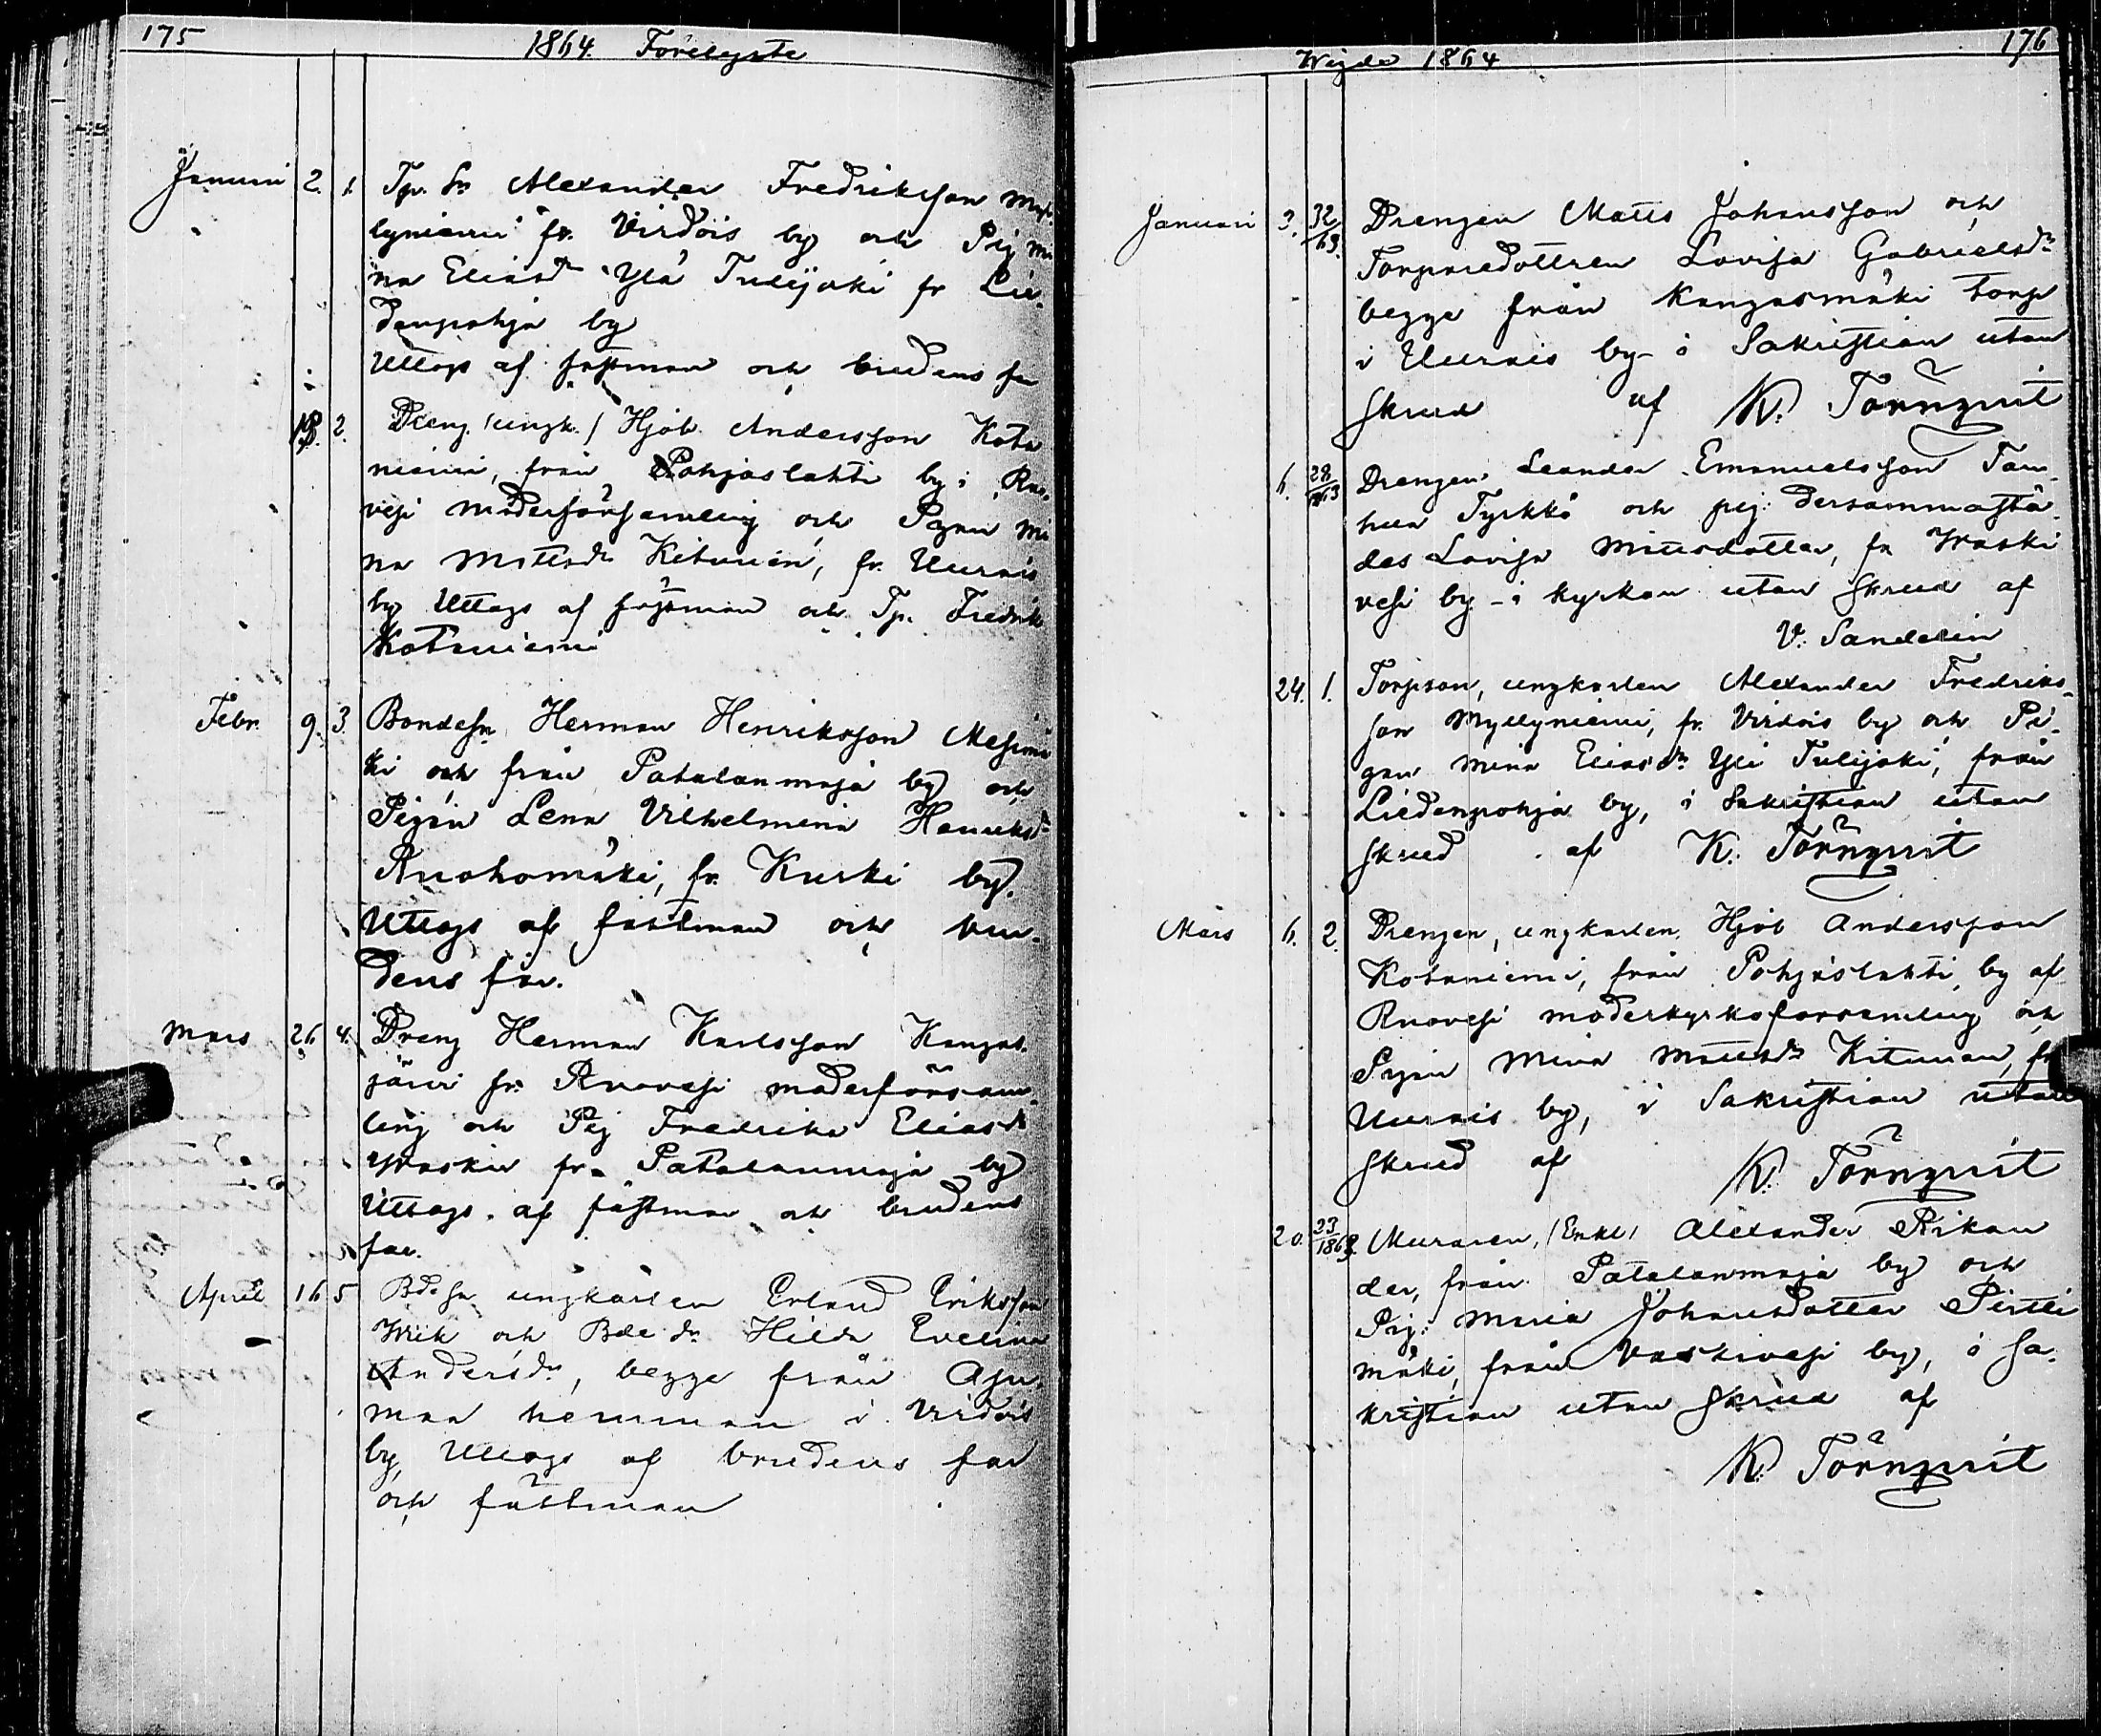 175
1864. Förelyste
Januari 2. 1. Tp. Sn Alexander Fredriksson Myl-
lyniemi fr. Virdois by och Pig. Mi
na Eliasdr Ylä Tulijoki fr Lie-
denpohja by
Uttogs af fästman och brudens far
18. 2. Dreng. (ungk.) Hjob Andersson Kota
niemi, från Pohjaslahti by i Ruo-
vesi moderförsamling och Pigan Mi
na Mattsdr Kitunen, fr. Uurais
by Uttogs af fästman och Tp. Fredrik
Kotaniemi
Febr. 9. 3. Bondesn Herman Henriksson Mesimä
ki och från Patalanmaja by och
Pigan Lena Vilhelmina Henriksdr
Ruohomäki, fr. Kurki by.
Uttogs af fästman och bru-
dens far.
Mars 26. 4. Dreng Herman Karlsson Kangas-
järvi fr. Ruovesi moderförsam-
ling och Pig Fredrika Eliasdr
fr. Patalanmaja by
Uttogs af fästman och brudens
far.
April 16 5 Bdesn ungkarlen Erland Eriksson
och Bdedr Hilda Evelina
Andersdr, begge från
hemman i Virdois
by, Uttogs af brudens far
och fästman
176
Wigde 1864
Januari 3. 32/63. Drengen Matts Johansson och
Torparedottren Lovisa Gabrielsdr
begge från Kangasmäki torp
i Uurais by - i Sakristian utan
skrud af K. Törnqvist
6. 28/63 Drengen Leander Emanuelsson Tau-
Tyrkkö och pig: dersammastä-
des Lovisa Mattsdotter, fr Waski
vesi by - i kyrkan utan skrud af
V. Sandelin
24. 1. Torpson, ungkarlen Alexander Fredriks-
son Myllyniemi, fr. Virdois by och Pi-
gan Mina Eliasdr Yli Tulijoki, från
Liedenpohja by, i Sakristian utan
skrud af K. Törnqvist
Mars 6. 2. Drengen, ungkarlen, Hjob Andersson
Kotaniemi, från Pohjaslahti by af
Ruovesi moderkyrkoförsamling och
Pigan Mina Mattsdr Kitunen, fr
Uurais by, i Sakristian utan
skrud af K. Törnqvist
20. 23/1863. Muraren, (Enkl) Alexander Rikan
der, från Patalanmaja by och
Pig: Maria Johansdotter Pirtti
mäki, från Vaskivesi by, i Sa-
kristian utan skrud af
K. Törnqvist